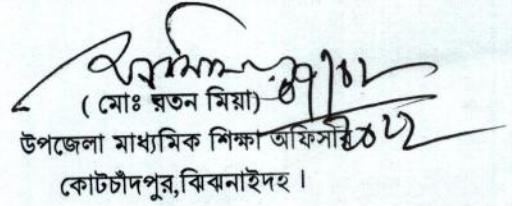 ( মোঃ রতন মিয়া)
উপজেলা মাধ্যমিক শিক্ষা অফিসার
কোটচাঁদপুর,ঝিনাইদহ ।